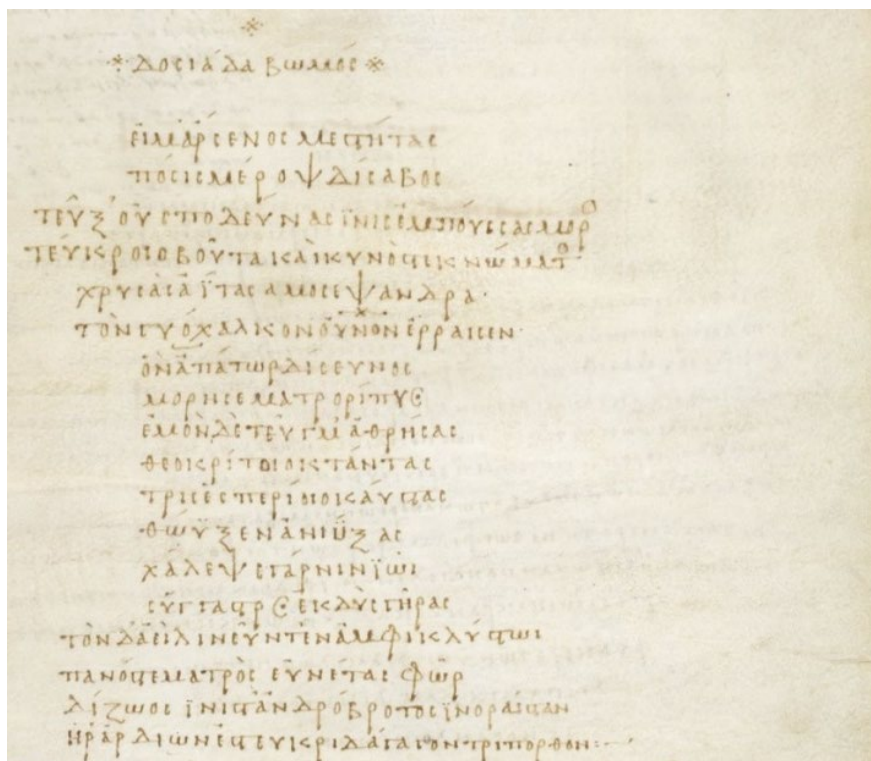 Δοσιάδα βωμός
εἱμάρσενος με στήτας
πόσις μέροψ δίσαβος
τεῦξ' οὐ σποδεύνας ἶνις ἐμπούσας μόρο
τεύκροιο βούτα καὶ κυνὸς τικνώματο
χρύσας ἀΐτας ἁμος ἑψάνδρα·
τὸν γυόχαλκον οὖνον ἔρραισεν·
ὃν ἀπάτωρ δίσευνος
μόρησε ματρορίπτος
ἐμὸν δὲ τεῦγμ' ἀθρήσας
θεοκρίτοιο κτάντας
τριεσπέροιο καύστας
θώϋξεν ἀνιΰξας
χάλεψε γάρ νιν ἰῶι
σύργαστρος ἐκδὺς γῆρας
τὸν δ' ἀείλινεῦντ' ἐν ἀμφικλύστωι
πανός τε ματρὸς εὐνέτας φὼρ
δίζωος ἶνις τ' ἀνδρόβροτος ἰλοραιστᾶν
ἦρ' ἀρδίων ἐς τευκρίδ' ἄγαγον τρίπορθον: